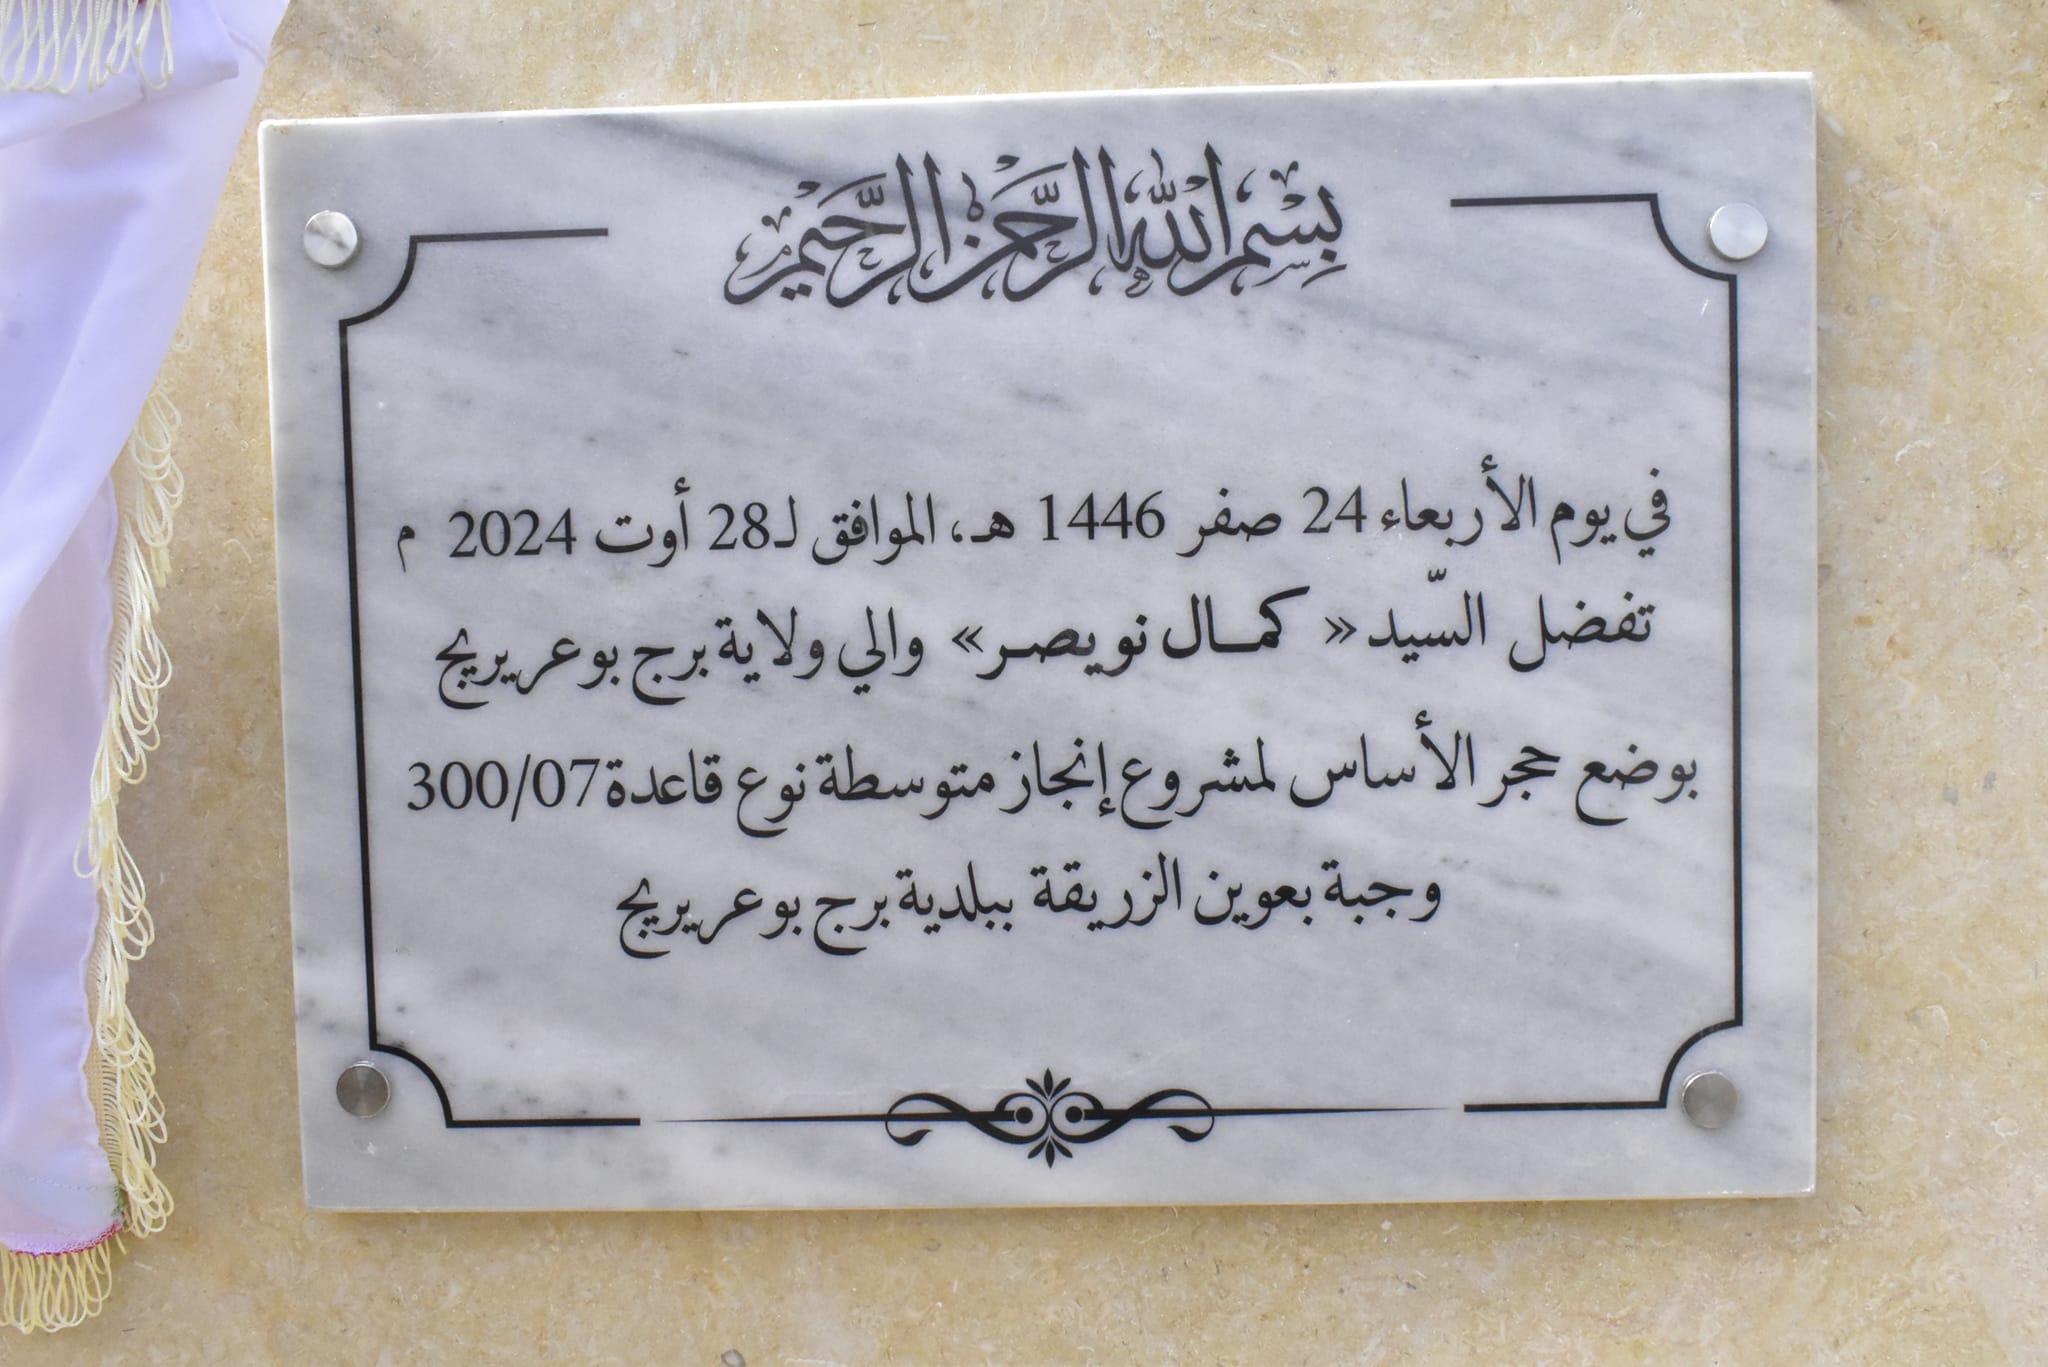 بِسْمِ اللهِ الرَّحْمَنِ الرَّحِيمِ
في يوم الأربعاء 24 صفر 1446 هـ، الموافق لـ28 أوت 2024 م
تفضل السّيد « كمـال نويصـر» والي ولاية برج بوعريريج
بوضع حجر الأساس لمشروع إنجاز متوسطة نوع قاعدة 300/07
وجبة بعوين الزريقة ببلدية برج بوعريريج